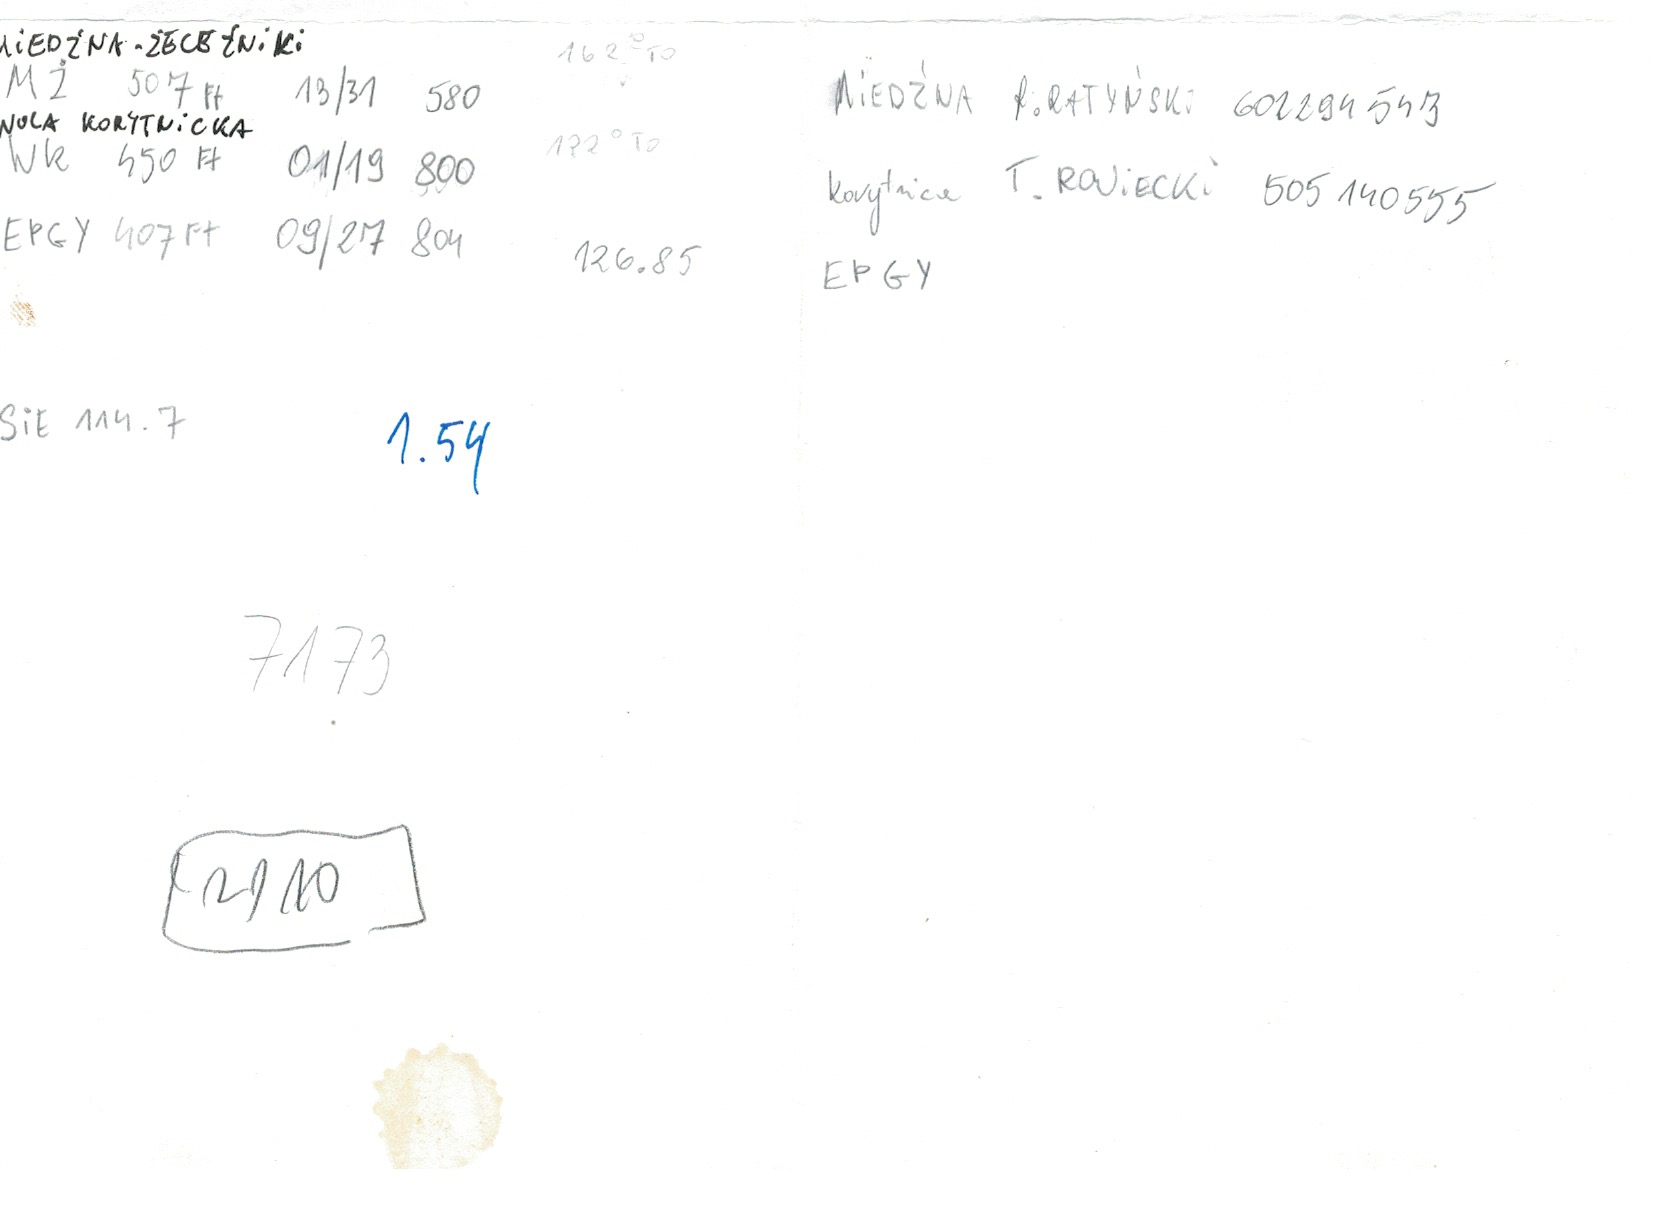 MIEDŹNA-ŻELEŹNIKI
MŻ 507 Ft 13/31 580 162° TO
WOLA KORYTNICKA
WK 450 Ft 01/19 800 122° TO
EPGY 407 Ft 09/27 804 126.85
SIE 114.7 1.54
7173
21/10
MIEDŹNA P. RATYŃSKI 602294543
Korytnica T. ROWIECKI 505140555
EPGY